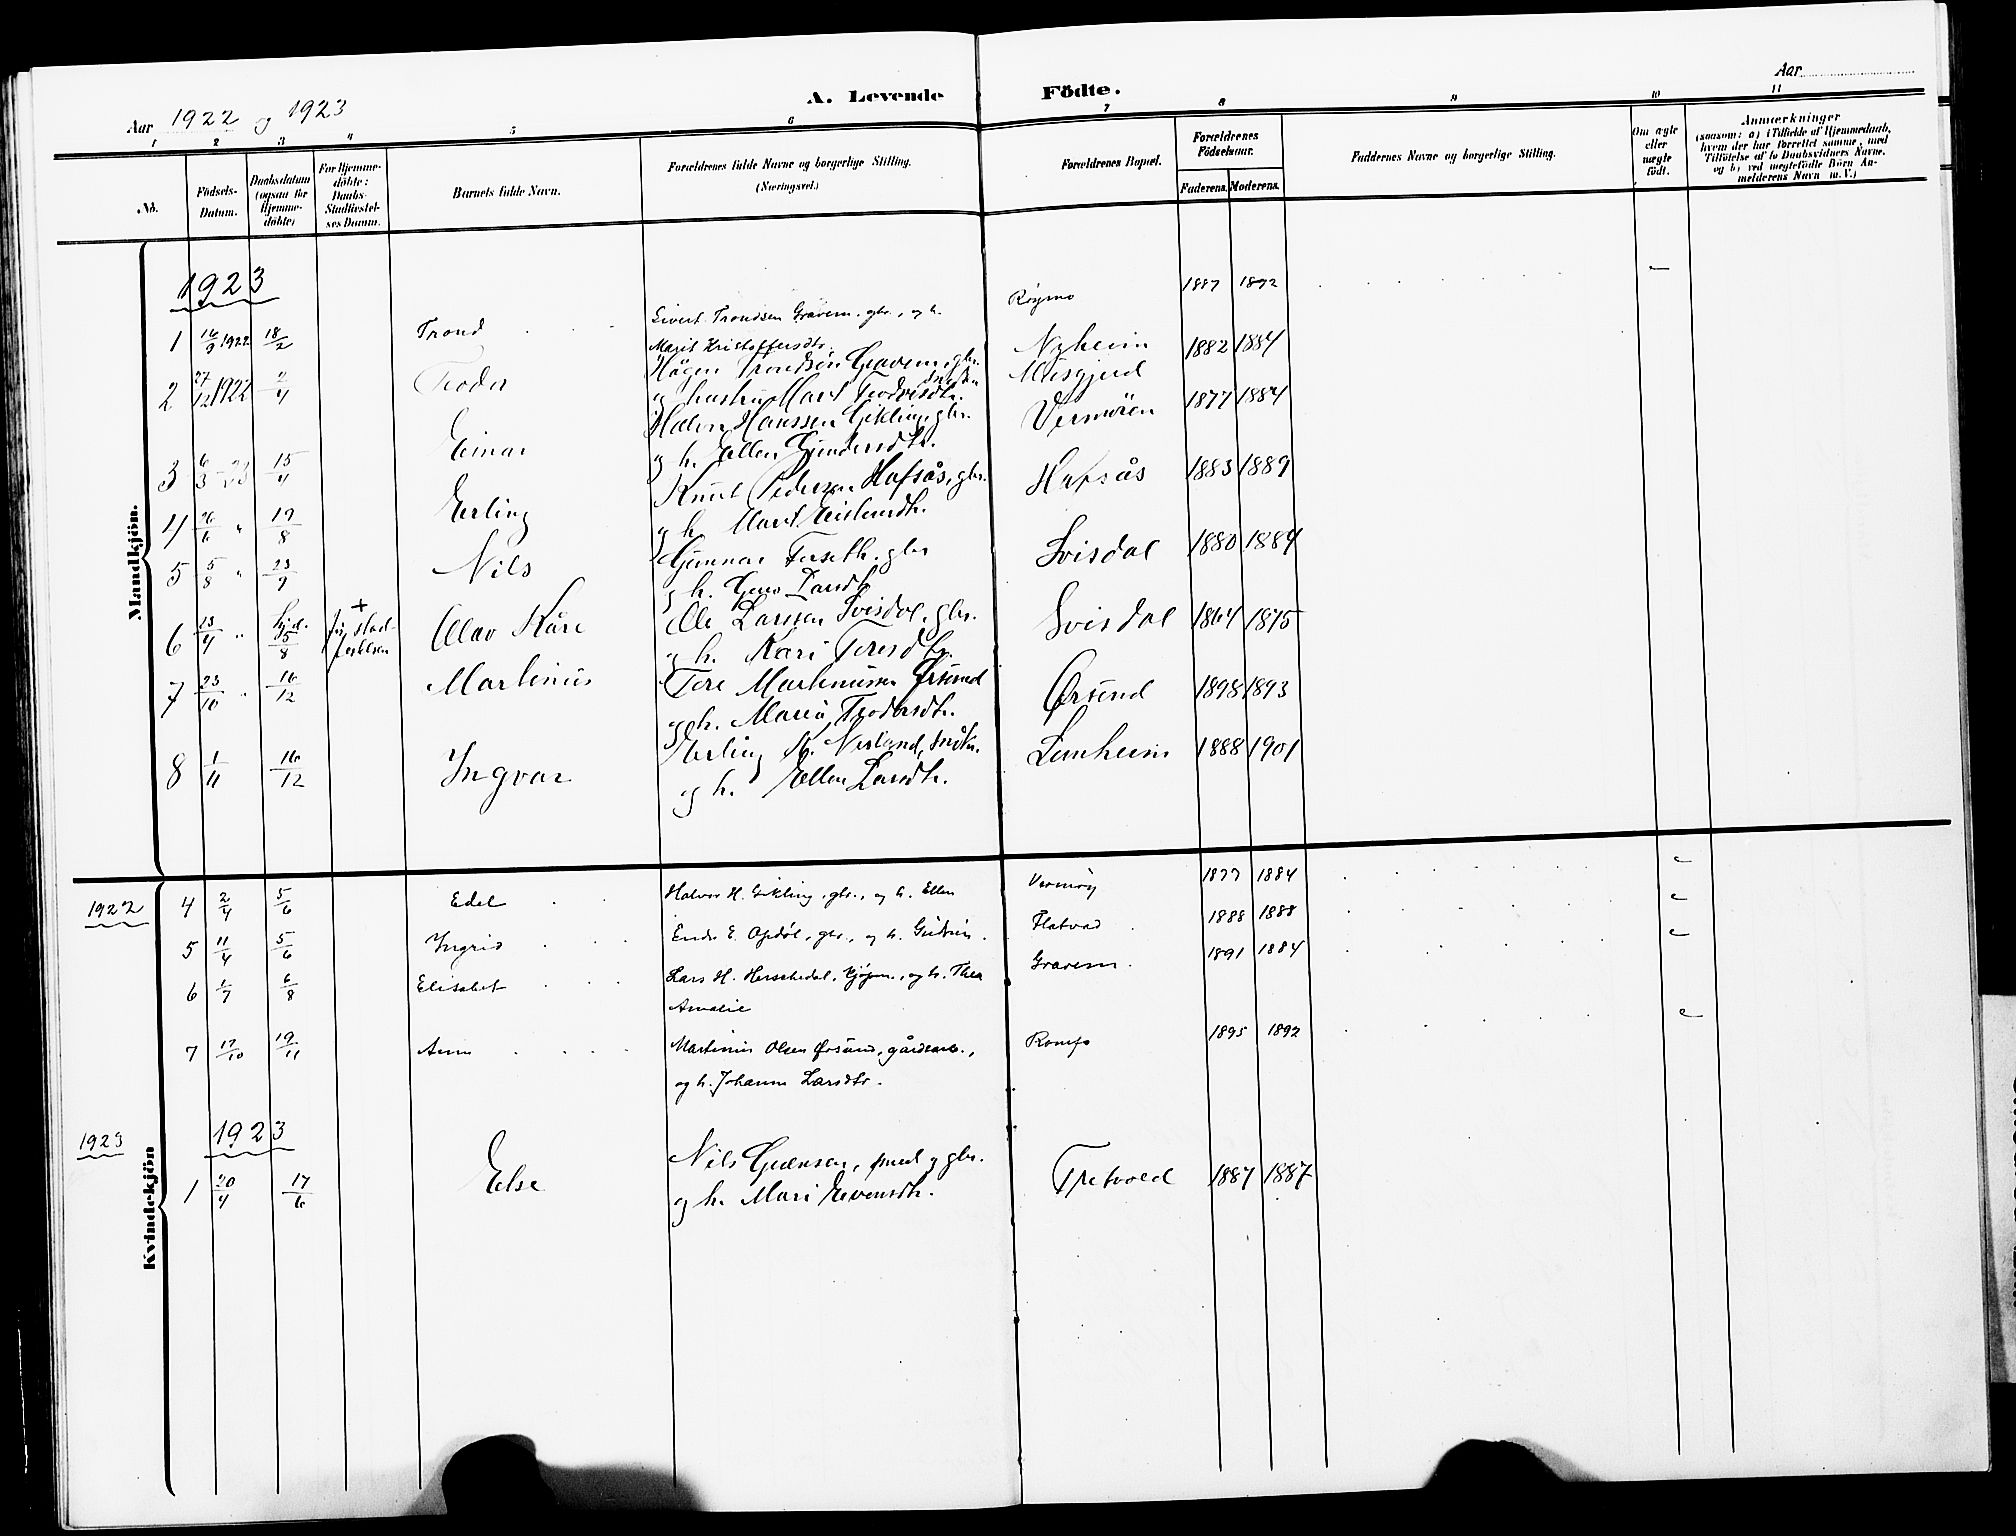 Aar 1922 og 1923
A. Levende Födte.
Aar
1 2 3 4 5 6 7 8 9 10 11
No.
Födsels-
Datum.
Daabsdatum
(ogsaa for
Hjemme-
döbte)
For Hjemme-
döbte:
Daabs-
Stadfæstel-
ses Datum.
Barnets fulde Navn.
Forældrenes fulde Navne og borgerlige Stilling.
(Næringsvei.)
Forældrenes Bopæl.
Forældrenes
Födselsaar.
Faderens. Moderens.
Faddernes Navne og borgerlige Stilling.
Om ægte
eller
uægte
födt.
Anmærkninger
(saasom: a) i Tilfælde af Hjemmedaab,
hvem der har forrettet samme, med
Tilföielse af to Daabsvidners Navne,
og b) ved uægtefödte Börn An-
melderens Navn m. V.)
Mandkjön.
1923
1 16/9 1922 18/2 Trond Sivert Trondsen Gravem, gbr., og h. Røymo 1887 1892
Marit Kristoffersdtr.
2 27/12 1922 2/4 Teodor Hågen Trondsen Gravem, gbr. Nyheim 1882 1884
og hustru Marit Teodorsdtr. Musgjerd
3 6/3 - 23 15/4 Einar Halvor Hanssen Gikling, gbr. Vermøien 1877 1884
og h. Ellen Gundersdtr.
4 26/6 " 19/8 Erling Knut Pedersen Hafsås, gbr. Hafsås 1883 1889
og h. Marit
5 5/8 " 23/9 Nils Gunnar Forseth, gbr Svisdal 1880 1884
og h. Larsdtr
6 13/4 " 5/8 + Olav Kåre Ole Larssen Svisdal, gbr. Svisdal 1864 1875
og h. Kari Toresdtr.
7 23/10 " 16/12 Martinus Tore Martinussen Ørsund Ørsund 1898 1893
og h. Maria Teodorsdtr.
8 1/11 16/12 Ingvar Erling K. Nisland, snekr. Lunheim 1888 1901
og h. Ellen Larsdtr.
Kvindekjön
1922
4 2/4 5/6 Edel Halvor H. Gikling, gbr., og h. Ellen Vermøy 1877 1884
5 11/4 5/6 Ingrid Endre E. Opdøl, gbr., og h. Gudrun. Flatvad 1888 1888
6 1/7 6/8 Elisabet Lars H. Horschedal, kjøpm., og h. Thea Gravem 1891 1884
Amalie
7 17/10 19/11 Anne Martinus Olsen Ørsund, gårdsarb., Romfo 1895 1892
og h. Johanne Larsdtr.
1923 1923
1 20/4 17/6 Else Nils smed og gbr. Tretvold 1887 1887
og h. Mari Evensdtr.